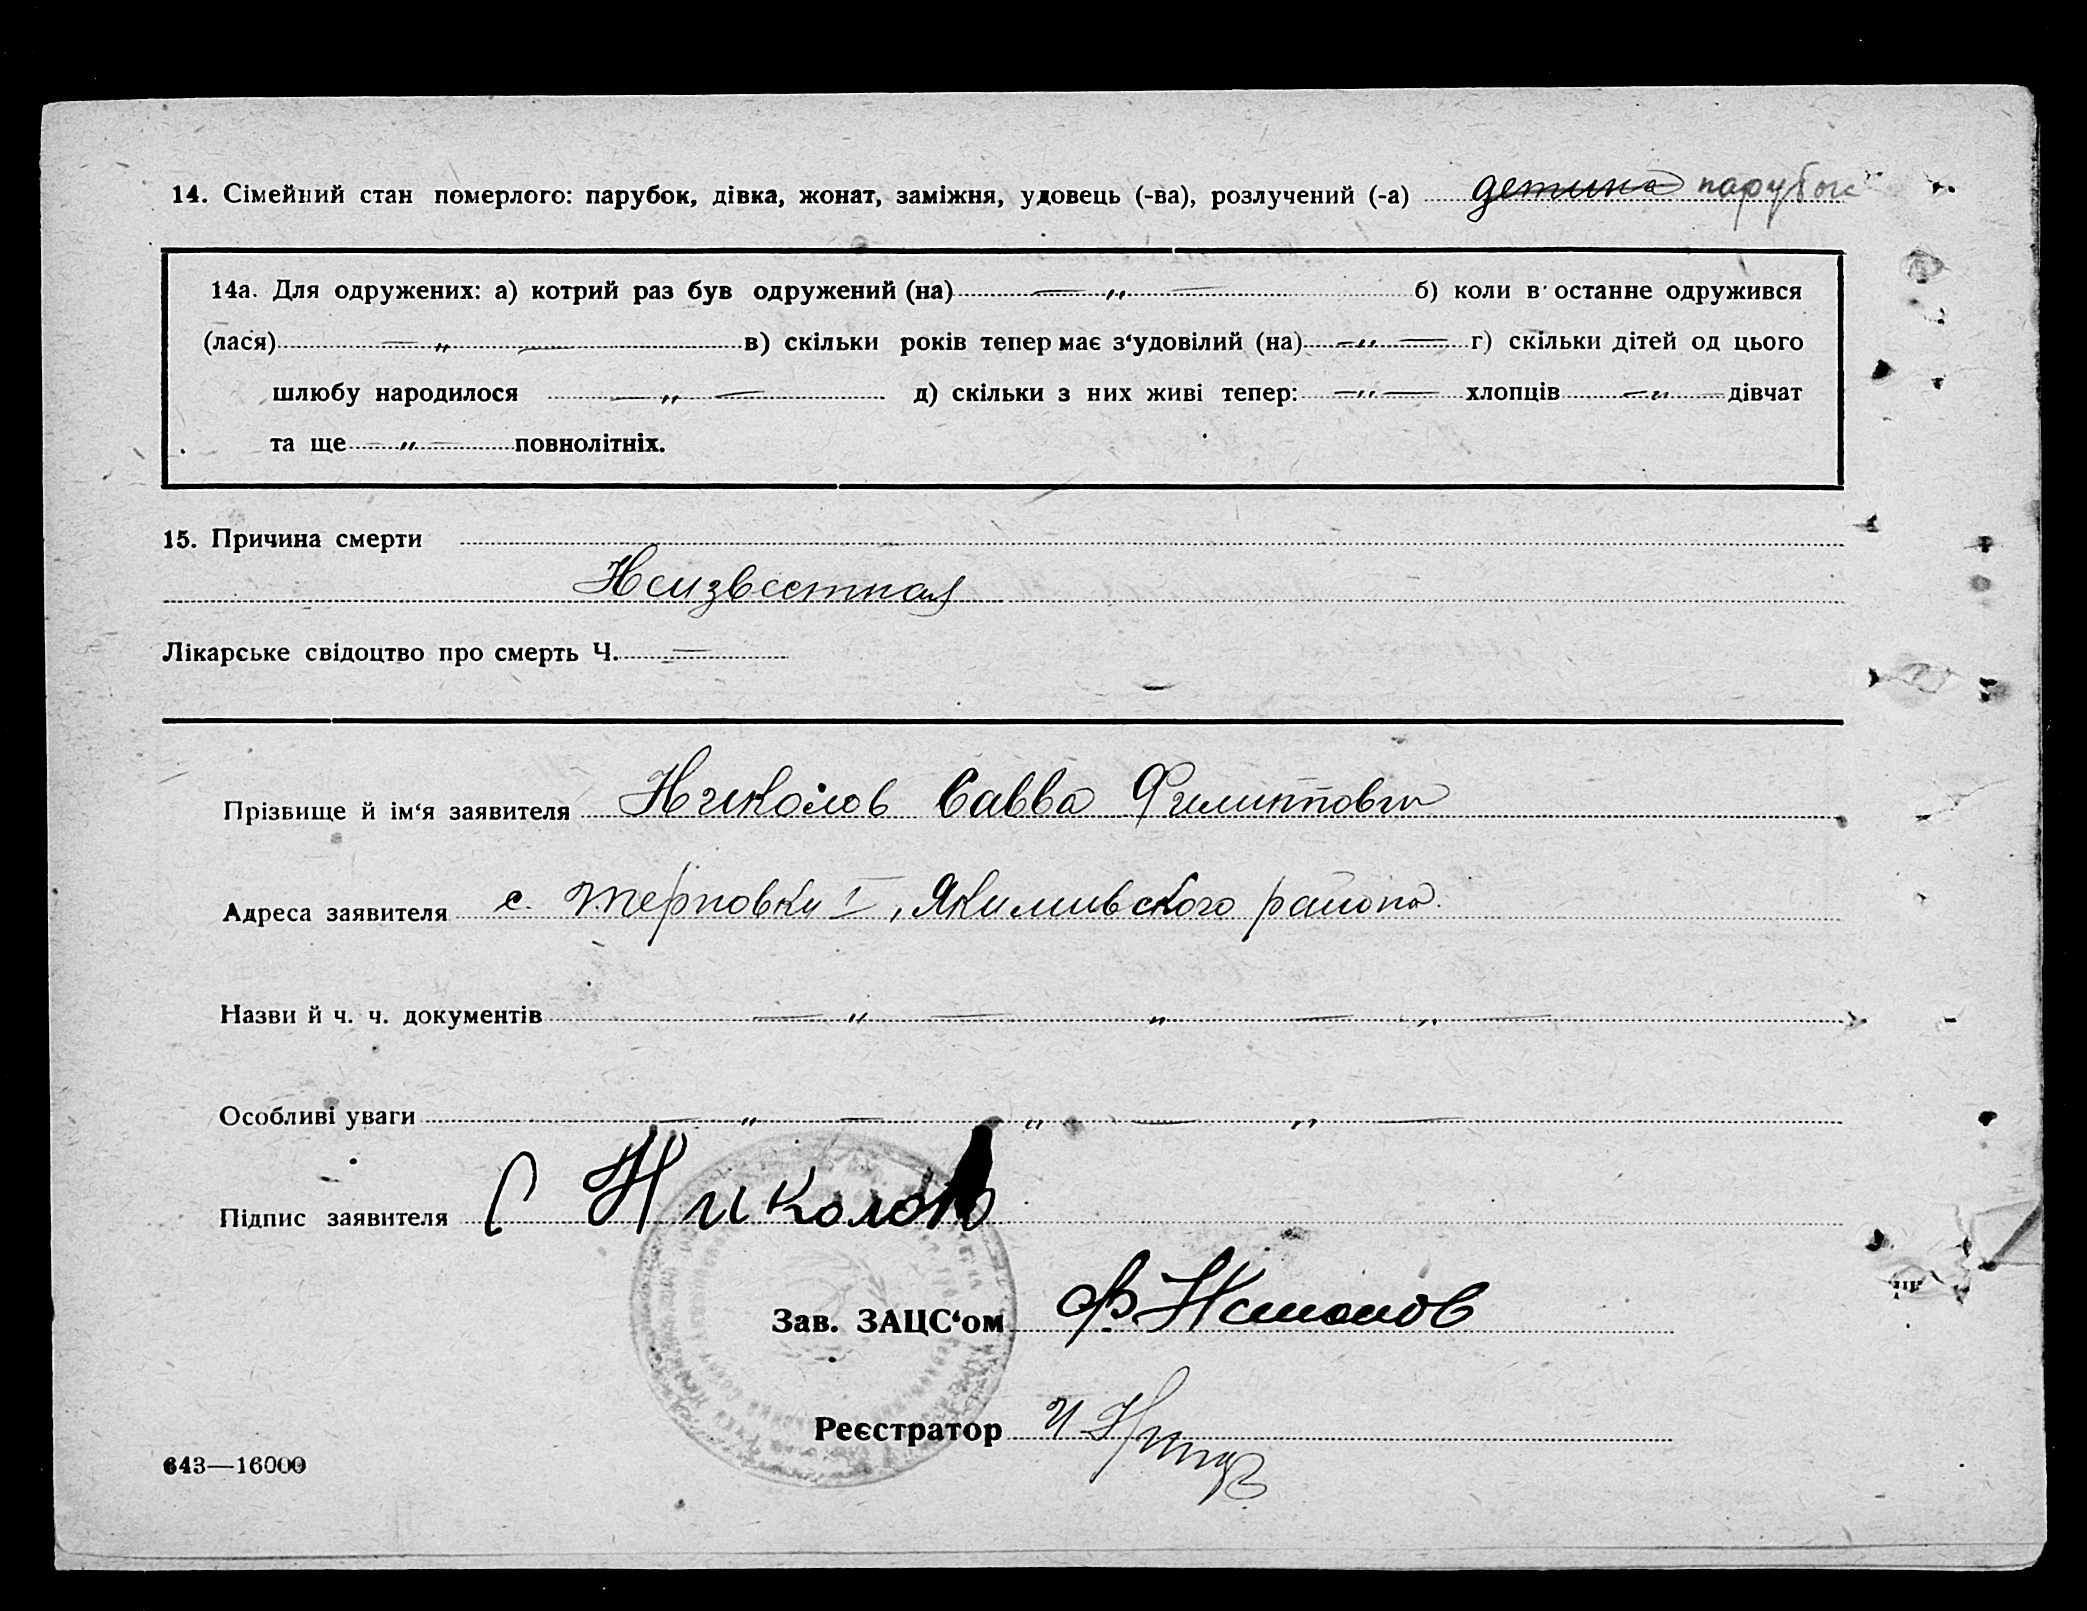 14. Сімейний стан померлого: парубок, дівка, жонат, заміжня, удовець (-ва), розлучений (-а) детина парубок
14а. Для одружених: а) котрий раз був одружений (на) — „ — б) коли в останне одружився
(лася) — „ — в) скільки років тепер має з‘удовілий (на) — „ — г) скільки дітей од цього
шлюбу народилося — „ — д) скільки з них живі тепер: — „ — хлопців — „ — дівчат
та ще — „ — повнолітніх.
15. Причина смерти
Неизвестная
Лікарське свідоцтво про смерть Ч. —
Прізвище й ім‘я заявителя Николов Савва Филиппович
Адреса заявителя с. Терновки I, Якимивского района
Назви й ч. ч. документів — „ — „ — „ —
Особливі уваги — „ — „ — „ —
Підпис заявителя С Николов
Зав. ЗАЦС‘ом
Реєстратор
643—16000